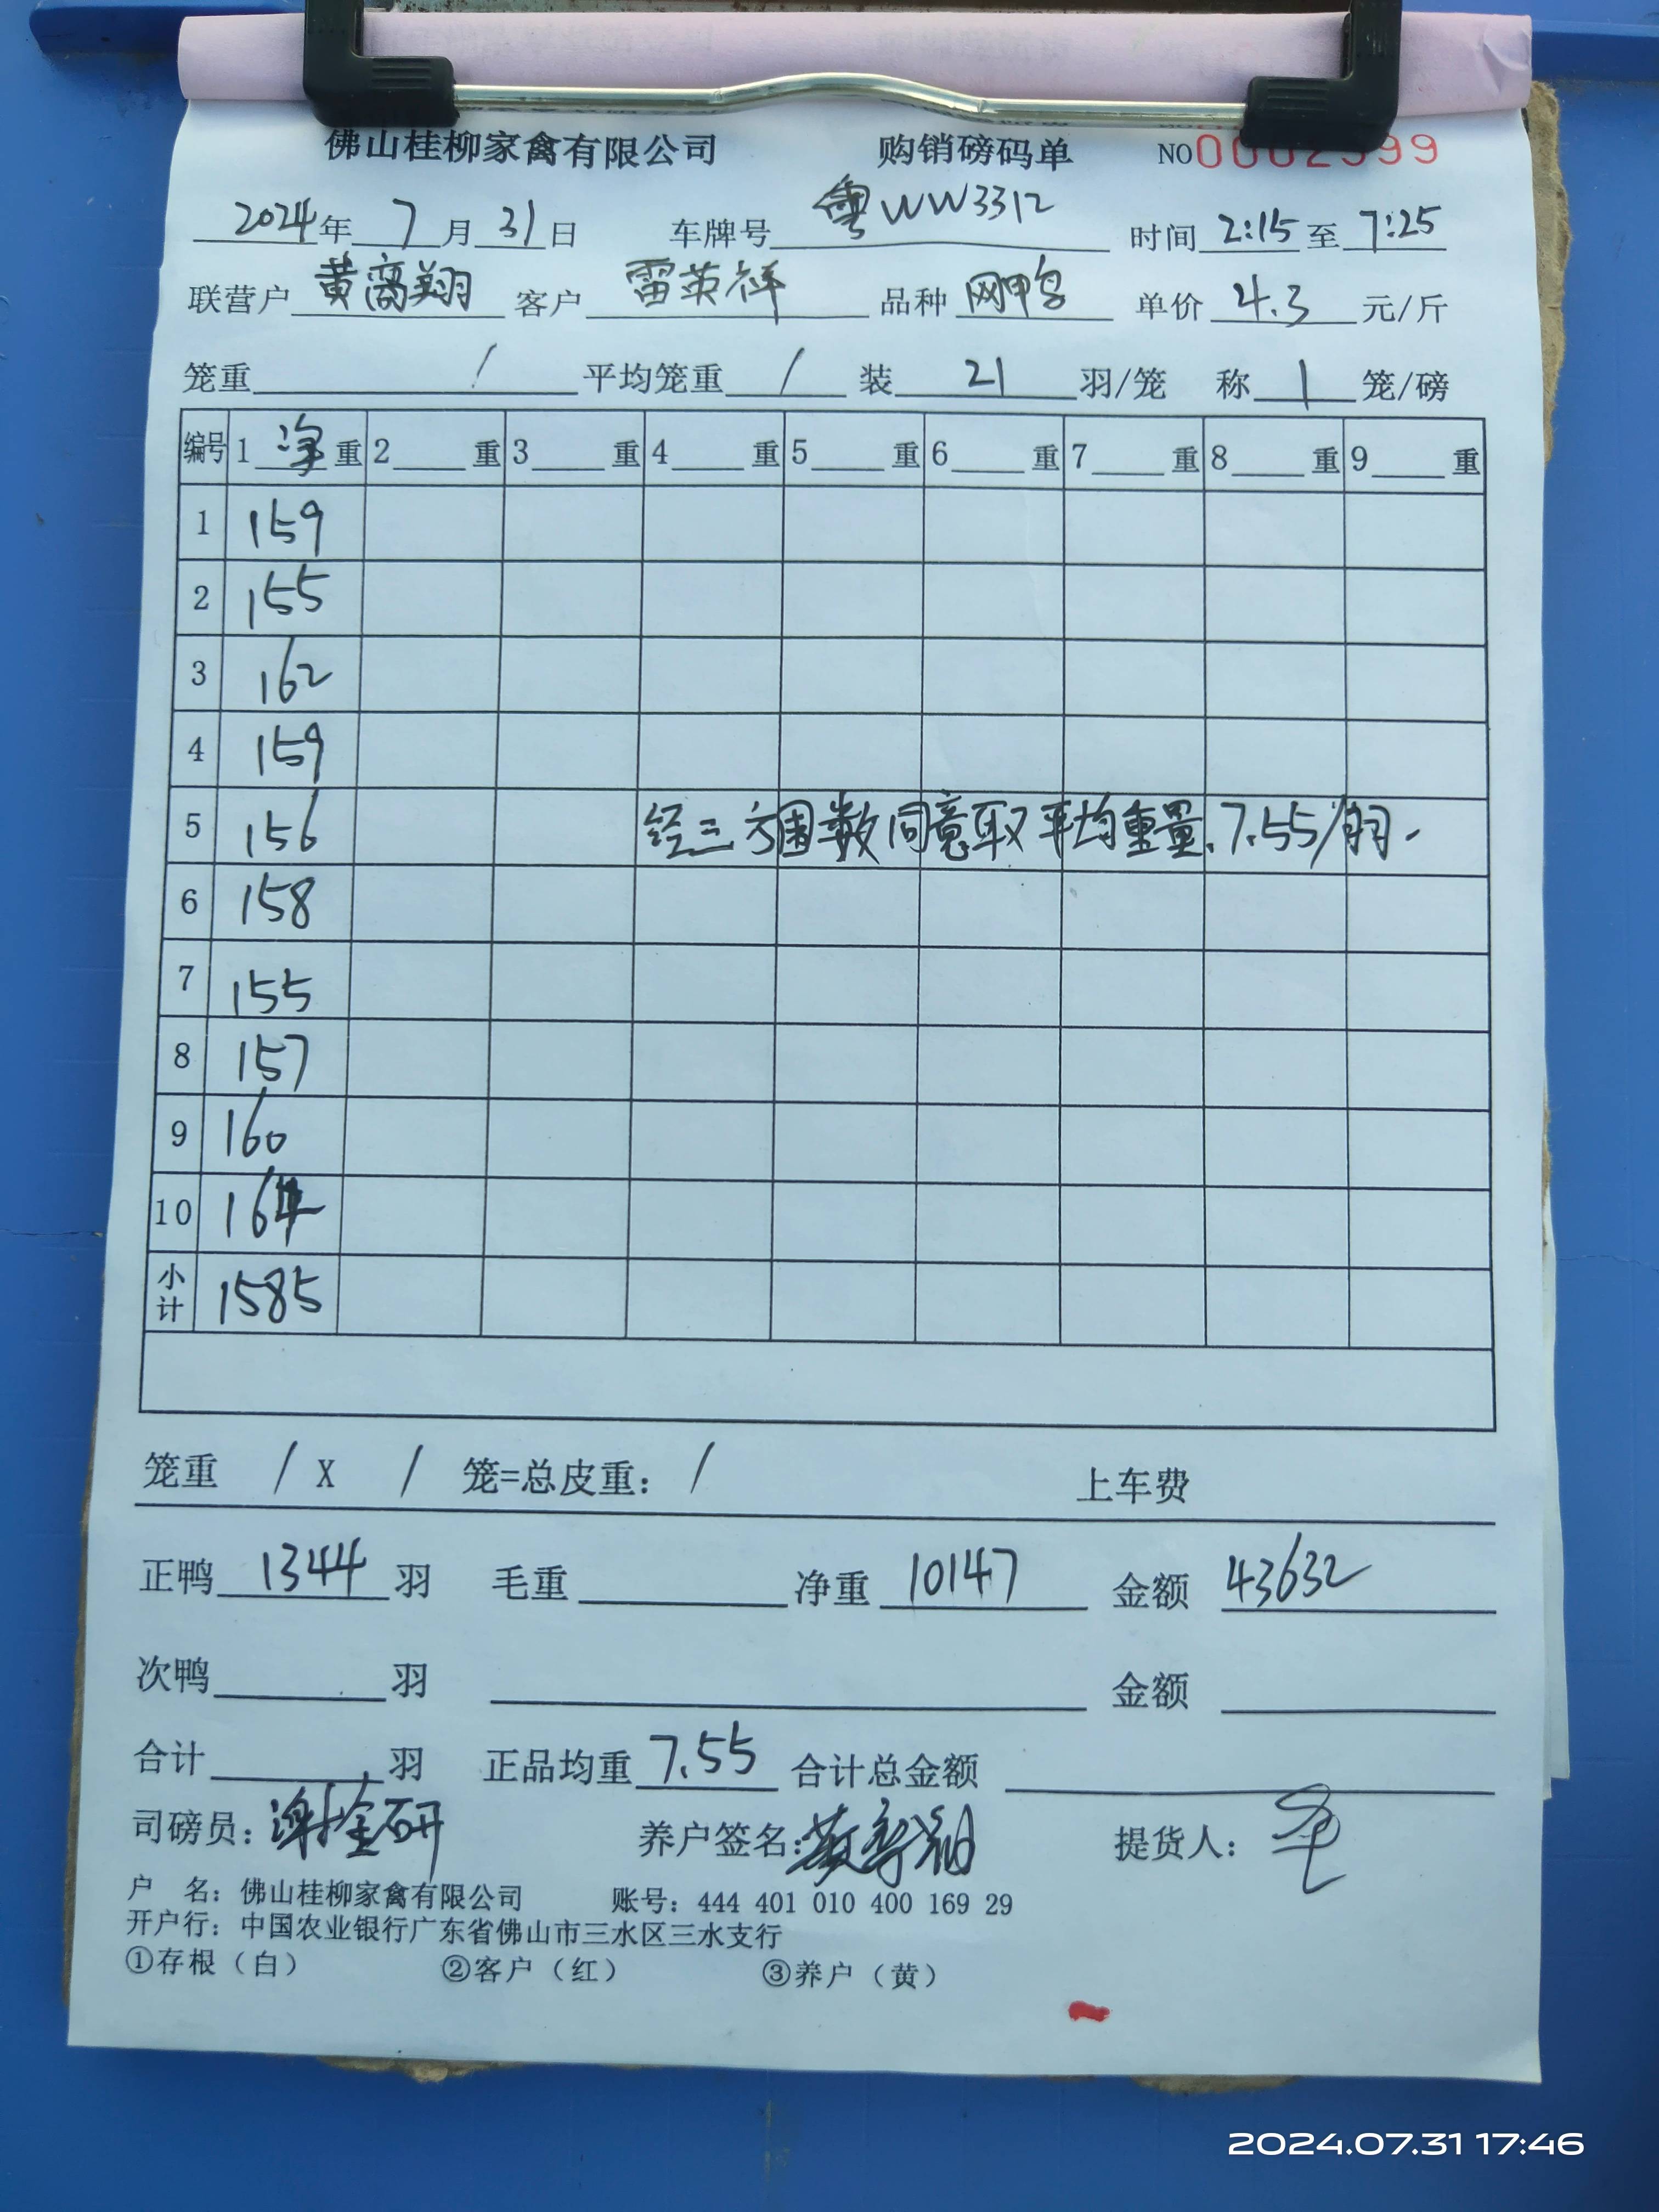 佛山桂柳家禽有限公司 购销磅码单 NO 0002599
2024年 7 月 31 日 车牌号 粤WW3312 时间 2:15 至 7:25
联营户 黄高翔 客户 雷英祥 品种 网鸭 单价 4.3 元/斤
笼重 / 平均笼重 / 装 21 羽/笼 称 1 笼/磅
编号 1 净 重 2 重 3 重 4 重 5 重 6 重 7 重 8 重 9 重
1 159
2 155
3 162
4 159
5 156 经三方围数同意取平均重量.7.55/羽.
6 158
7 155
8 157
9 160
10 164
小计 1585
笼重 / X / 笼=总皮重: / 上车费
正鸭 1344 羽 毛重 净重 10147 金额 43632
次鸭 羽 金额
合计 羽 正品均重 7.55 合计总金额
司磅员: 养户签名: 提货人:
户 名: 佛山桂柳家禽有限公司 账号: 444 401 010 400 169 29
开户行: 中国农业银行广东省佛山市三水区三水支行
①存根（白） ②客户（红） ③养户（黄）
2024.07.31 17:46